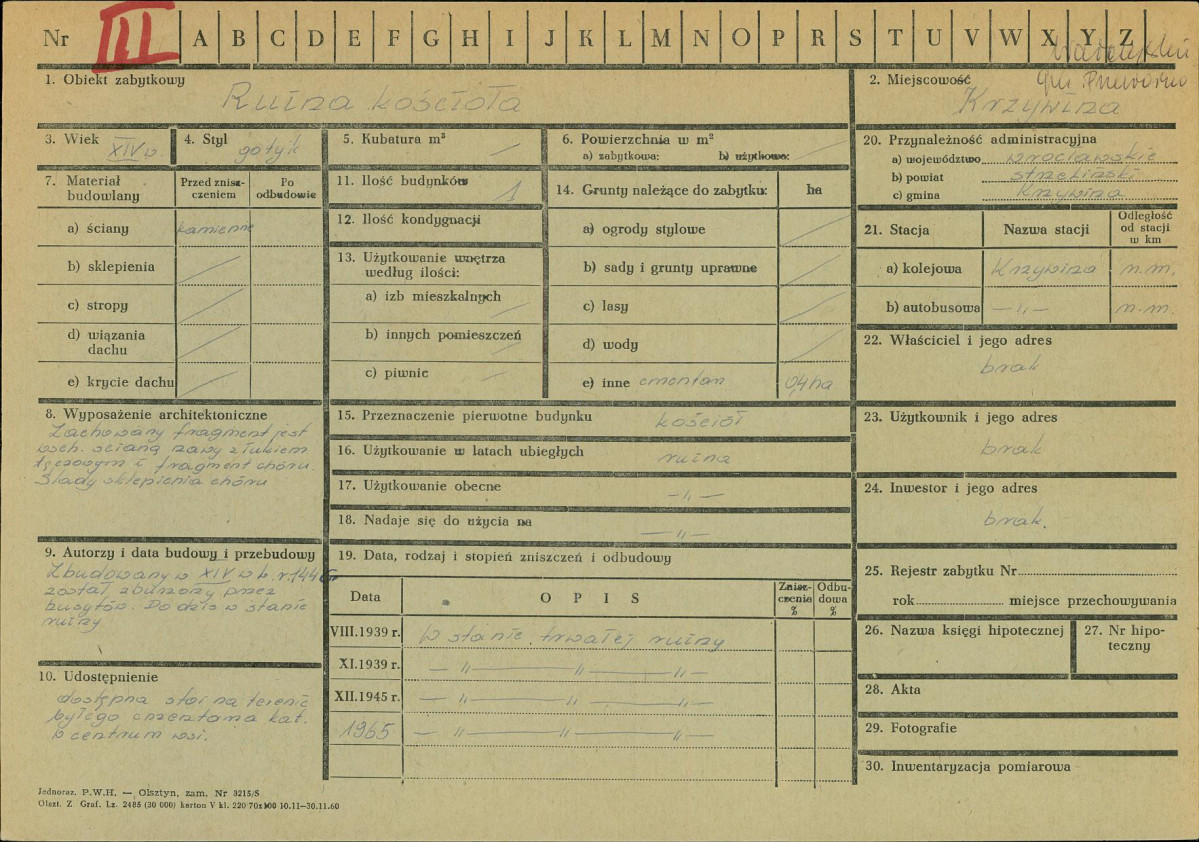 Nr III A B C D E F G H I J K L M N O P R S T U V W X Y Z
1. Obiekt zabytkowy
Ruina kościoła
2. Miejscowość
Krzywina
3. Wiek XIV w.
4. Styl gotyk
5. Kubatura m³
6. Powierzchnia w m²
a) zabytkowa: b) użytkowa:
7. Materiał budowlany
Przed znisz-
czeniem
Po
odbudowie
a) ściany kamienne
b) sklepienia
c) stropy
d) wiązania
dachu
e) krycie dachu
8. Wyposażenie architektoniczne
Zachowany fragment jest
wsch. ścianą nawy z łukiem
tęczowym i fragment chóru.
Ślady sklepienia chóru
9. Autorzy i data budowy i przebudowy
Zbudowany w XIV w
został zburzony przez
husytów. Do dziś w stanie
ruiny
10. Udostępnienie
dostępna stoi na terenie
byłego cmentarza kat.
w centrum wsi.
11. Ilość budynków 1
12. Ilość kondygnacji
13. Użytkowanie wnętrza
według ilości:
a) izb mieszkalnych
b) innych pomieszczeń
c) piwnic
14. Grunty należące do zabytku: ha
a) ogrody stylowe
b) sady i grunty uprawne
c) lasy
d) wody
e) inne cmentarz 0,4 ha
15. Przeznaczenie pierwotne budynku kościół
16. Użytkowanie w latach ubiegłych ruina
17. Użytkowanie obecne — „ —
18. Nadaje się do użycia na — „ —
19. Data, rodzaj i stopień zniszczeń i odbudowy
Data O P I S Znisz-
czenia
% Odbu-
dowa
%
VIII.1939 r. w stanie trwałej ruiny
XI.1939 r. — „ — „ — „ —
XII.1945 r. — „ — „ — „ —
1965 — „ — „ — „ —
20. Przynależność administracyjna
a) województwo wrocławskie
b) powiat strzeliński
c) gmina Krzywina
21. Stacja Nazwa stacji Odległość
od stacji
w km
a) kolejowa Krzywina n.m.
b) autobusowa — „ — n.m.
22. Właściciel i jego adres
brak
23. Użytkownik i jego adres
brak
24. Inwestor i jego adres
brak.
25. Rejestr zabytku Nr
rok miejsce przechowywania
26. Nazwa księgi hipotecznej
27. Nr hipo-
teczny
28. Akta
29. Fotografie
30. Inwentaryzacja pomiarowa
Jednoraz. P.W.H. — Olsztyn, zam. Nr 3215/S
Olszt. Z. Graf. Lz. 2485 (30 000) karton V kl. 220 70x100 10.11—30.11.60